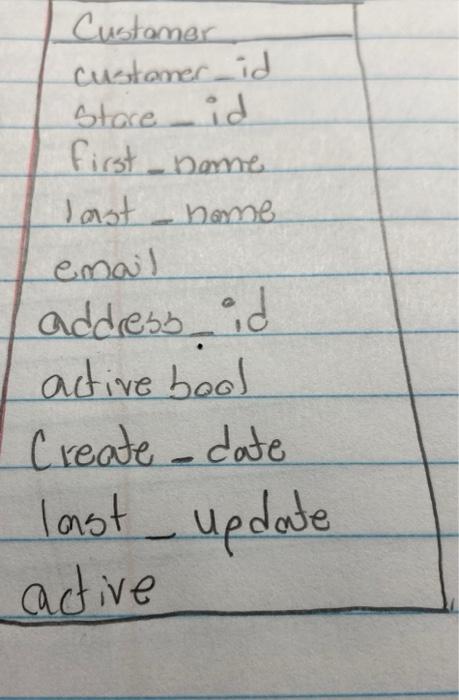 Customer
customer_id
Store_id
first_name
last_name
email
address_id
active bool
Create_date
last_update
active